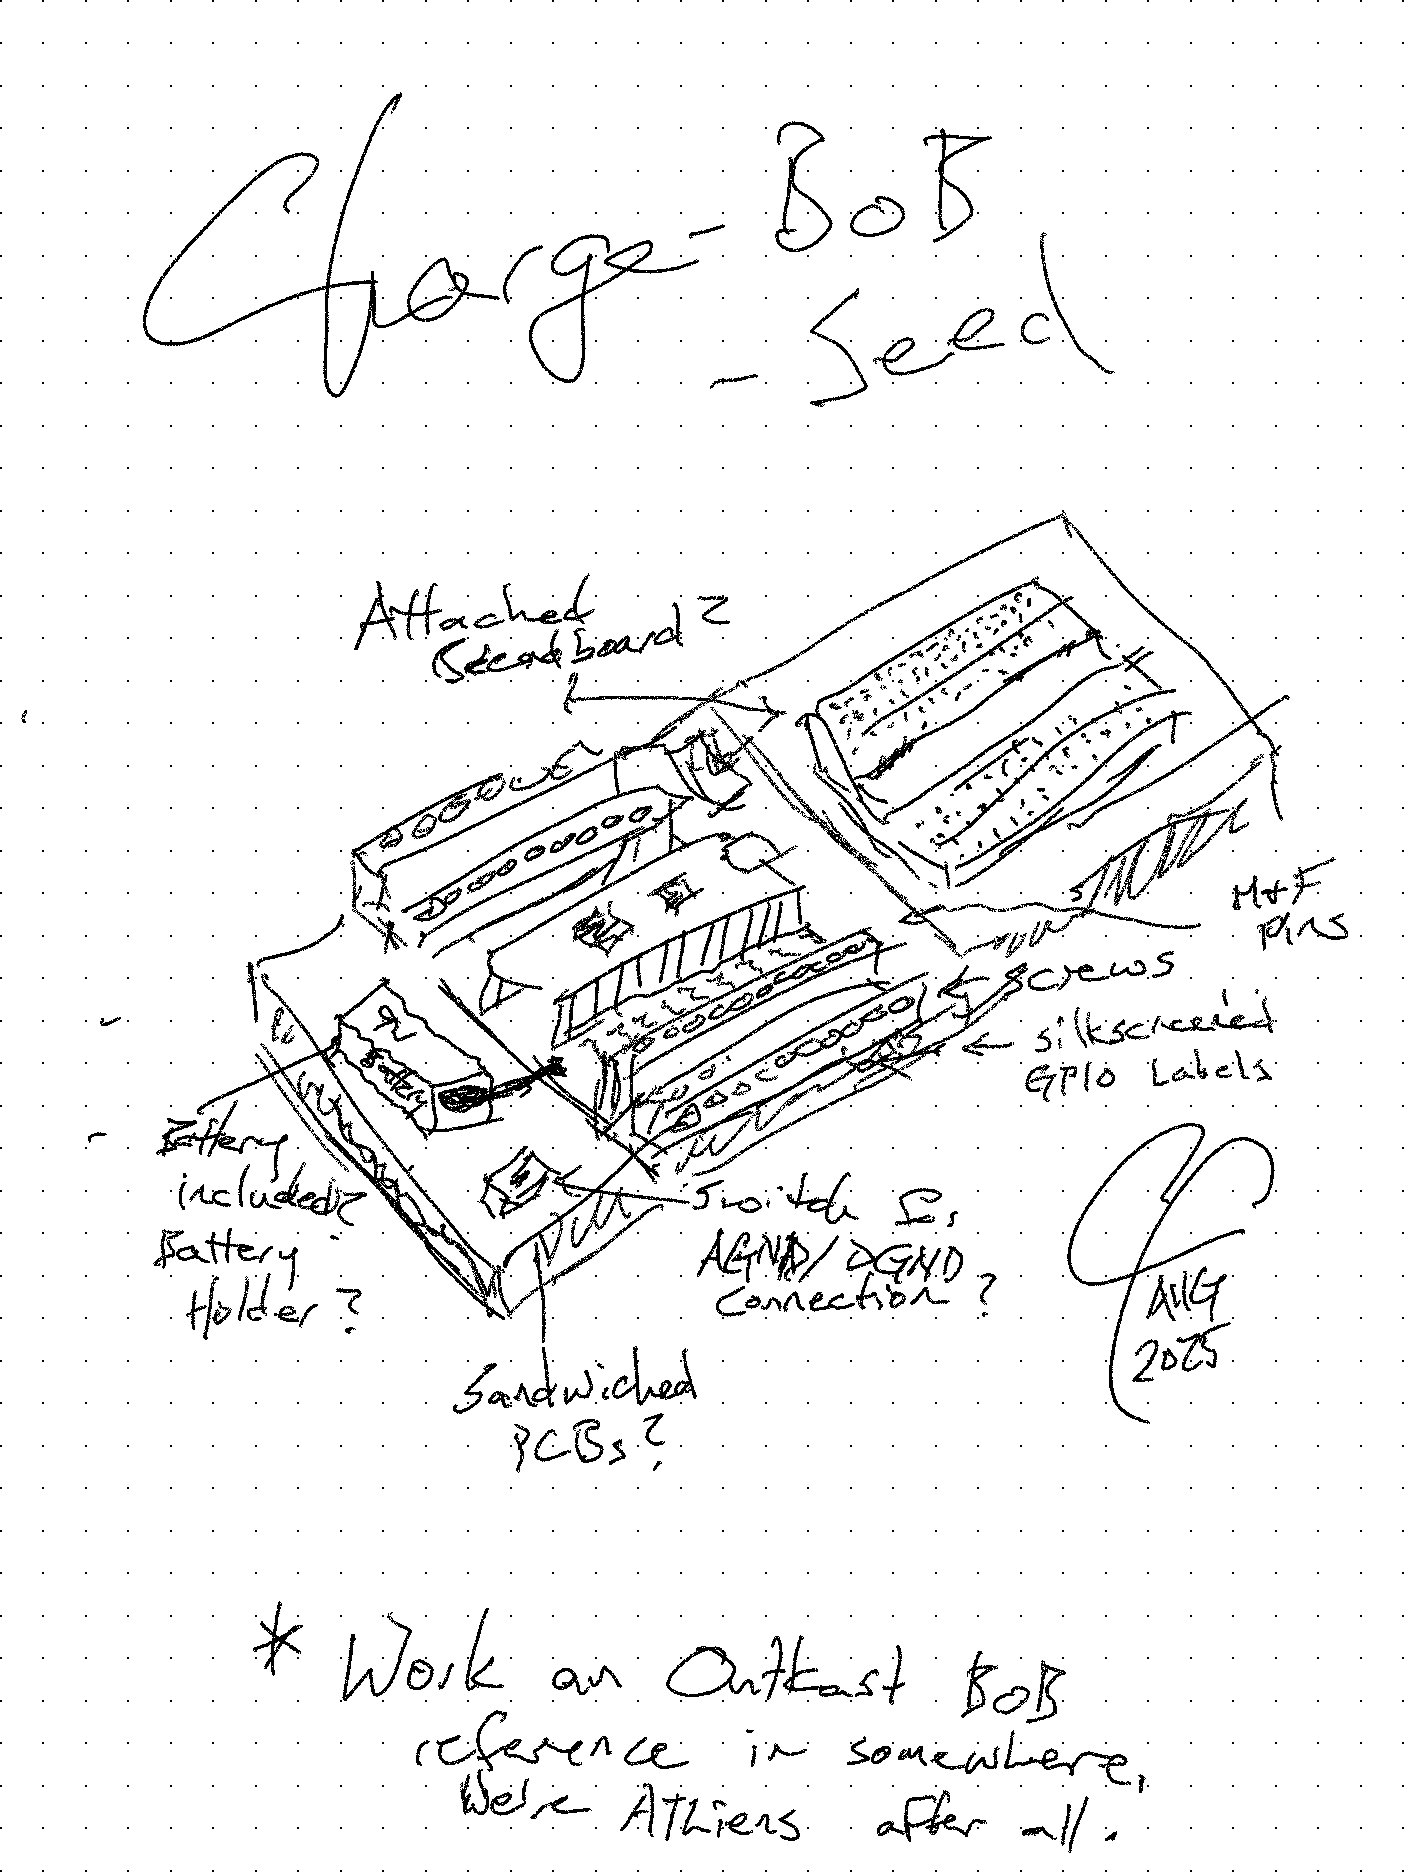 Charge-BoB
-Seed
Attached
Breadboard?
M+F
Pins
screws
silkscreened
GPIO Labels
Battery
Battery
included?
Battery
Holder?
Switch for
AGND/DGND
Connection?
AUG
2025
Sandwiched
PCBs?
* Work an Outkast BoB
reference in somewhere,
We're
after all.